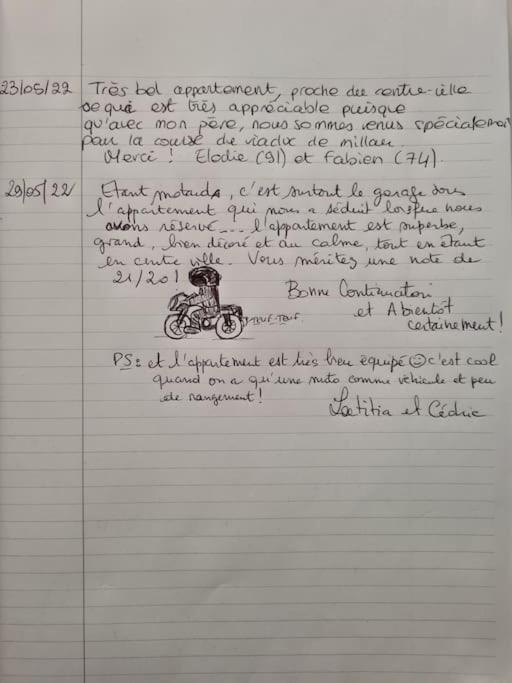 23/05/22 Très bel appartement, proche du centre-ville
ce qui est très appréciable puisque
qu'avec mon père, nous sommes venus spécialement
pour la course du viaduc de millau.
Merci ! Elodie (91) et Fabien (74).
29/05/22 Etant motards, c'est surtout le garage sous
l'appartement qui nous a séduit lorsque nous
avons réservé... l'appartement est superbe,
grand, bien décoré et au calme, tout en étant
en centre ville. Vous méritez une note de
21/20!
TEUF-TEUF.
Bonne Continuation
et A bientôt
certainement!
PS: et l'appartement est très bien équipé ☺ c'est cool
quand on a qu'une moto comme véhicule et peu
de rangement!
Laetitia et Cédric